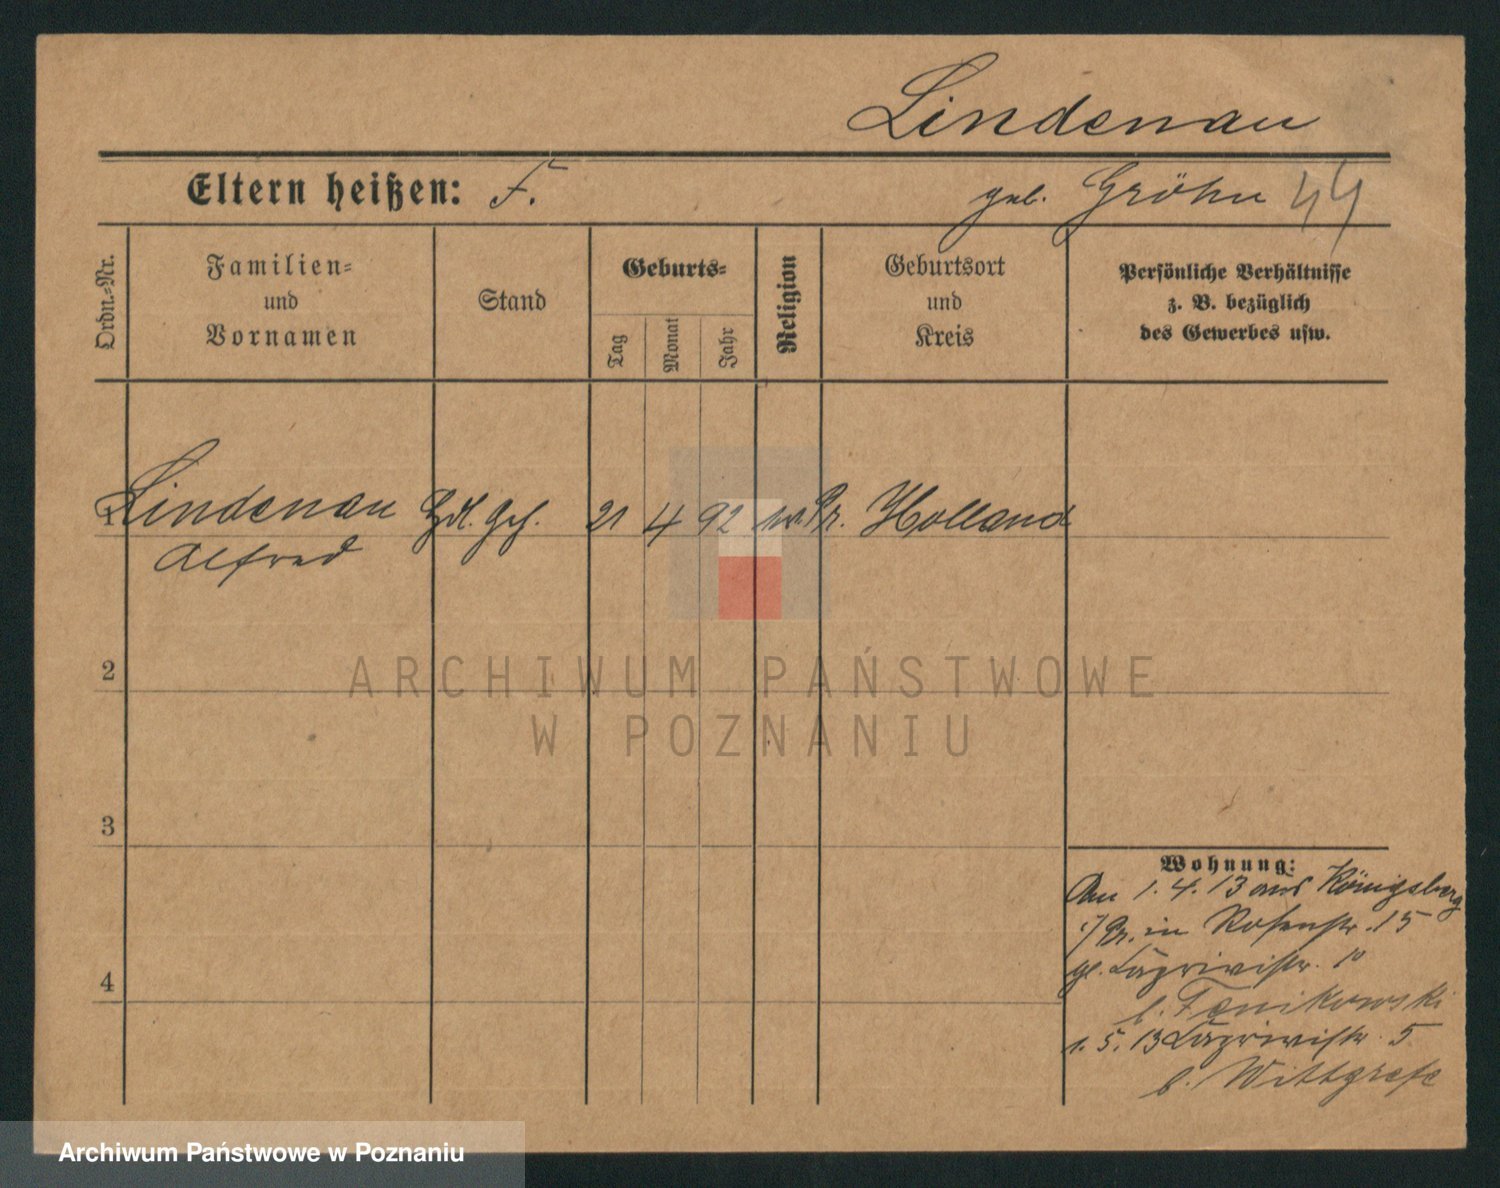 Lindenau
Eltern heißen: F. geb. Gröhn 44
Ordn.-Nr.
Familien-
und
Vornamen
Stand
Geburts-
Tag
Monat
Jahr
Religion
Geburtsort
und
Kreis
Persönliche Verhältnisse
z. B. bezüglich
des Gewerbes usw.
1 Lindenau Hdl. Geh. 21 4 92 ev. Pr. Holland
Alfred
2
3
4
Wohnung:
Am 1. 4. 13 aus Königsberg
i/Pr. in Rosenstr. 15
b. Fenikowski
1. 5. 13 5
b. Wittgrefe
ARCHIWUM PAŃSTWOWE
W POZNANIU
Archiwum Państwowe w Poznaniu